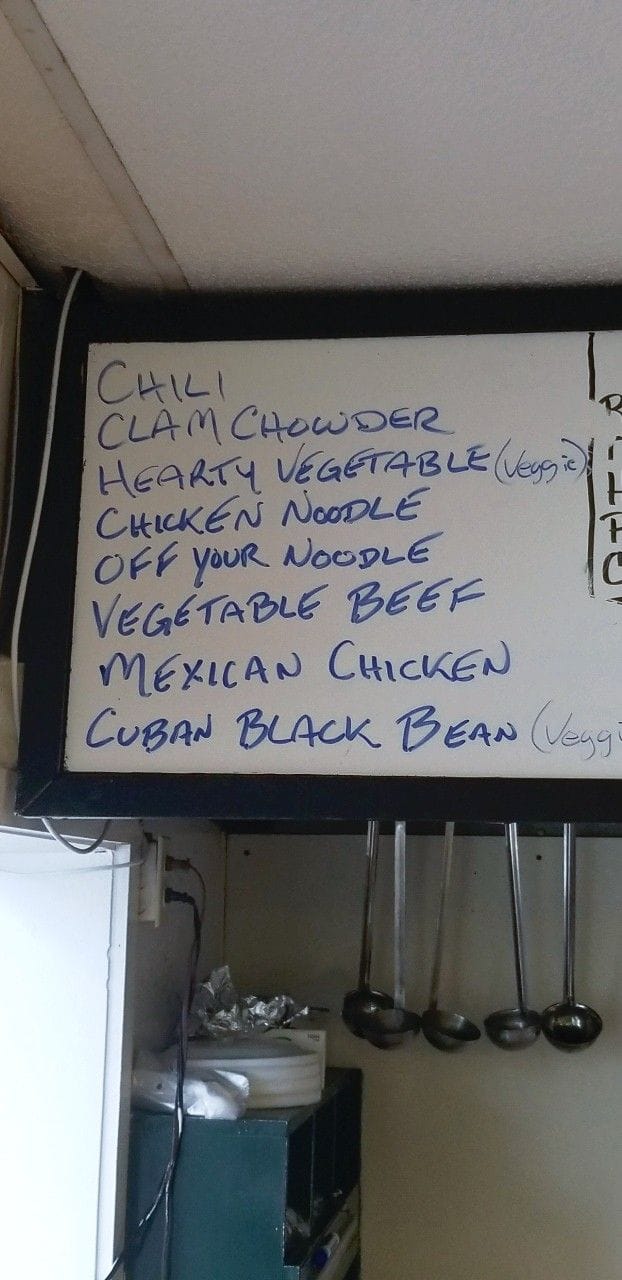 CHILI
CLAM CHOWDER
HEARTY VEGETABLE (Veggie)
CHICKEN NOODLE
OFF YOUR NOODLE
VEGETABLE BEEF
MEXICAN CHICKEN
CUBAN BLACK BEAN (Veggi